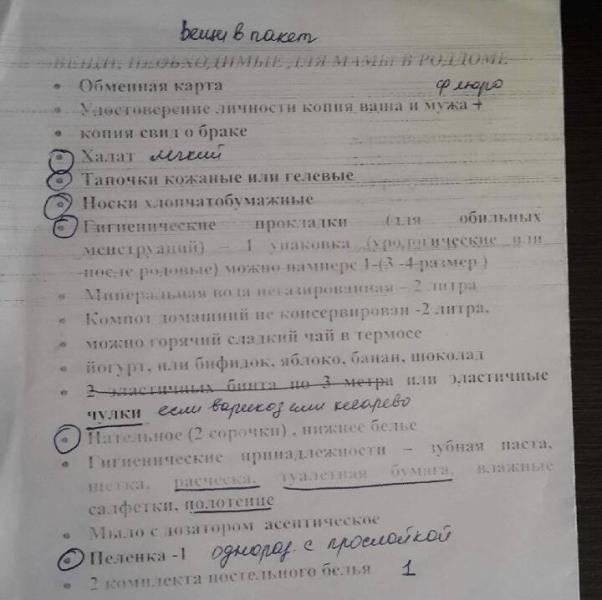 вещи в пакет
ВЕЩИ, НЕОБХОДИМЫЕ ДЛЯ МАМЫ В РОДДОМЕ
• Обменная карта флюро
• Удостоверение личности копия ваша и мужа +
• копия свид о браке
• Халат легкий
• Тапочки кожаные или гелевые
• Носки хлопчатобумажные
• Гигиенические прокладки (для обильных
менструаций) – 1 упаковка (урологические или
после родовые) можно памперс 1-(3 -4-размер )
• Минеральная вода негазированная – 2 литра
• Компот домашний не консервирован -2 литра,
• можно горячий сладкий чай в термосе
• йогурт, или бифидок, яблоко, банан, шоколад
• 2 эластичных бинта по 3 метра или эластичные
чулки если варикоз или кесарево
• Нательное (2 сорочки) , нижнее белье
• Гигиенические принадлежности – зубная паста,
щетка, расческа, туалетная бумага, влажные
салфетки, полотенце
• Мыло с дозатором асептическое
• Пеленка -1 однораз. с прослойкой
• 2 комплекта постельного белья 1